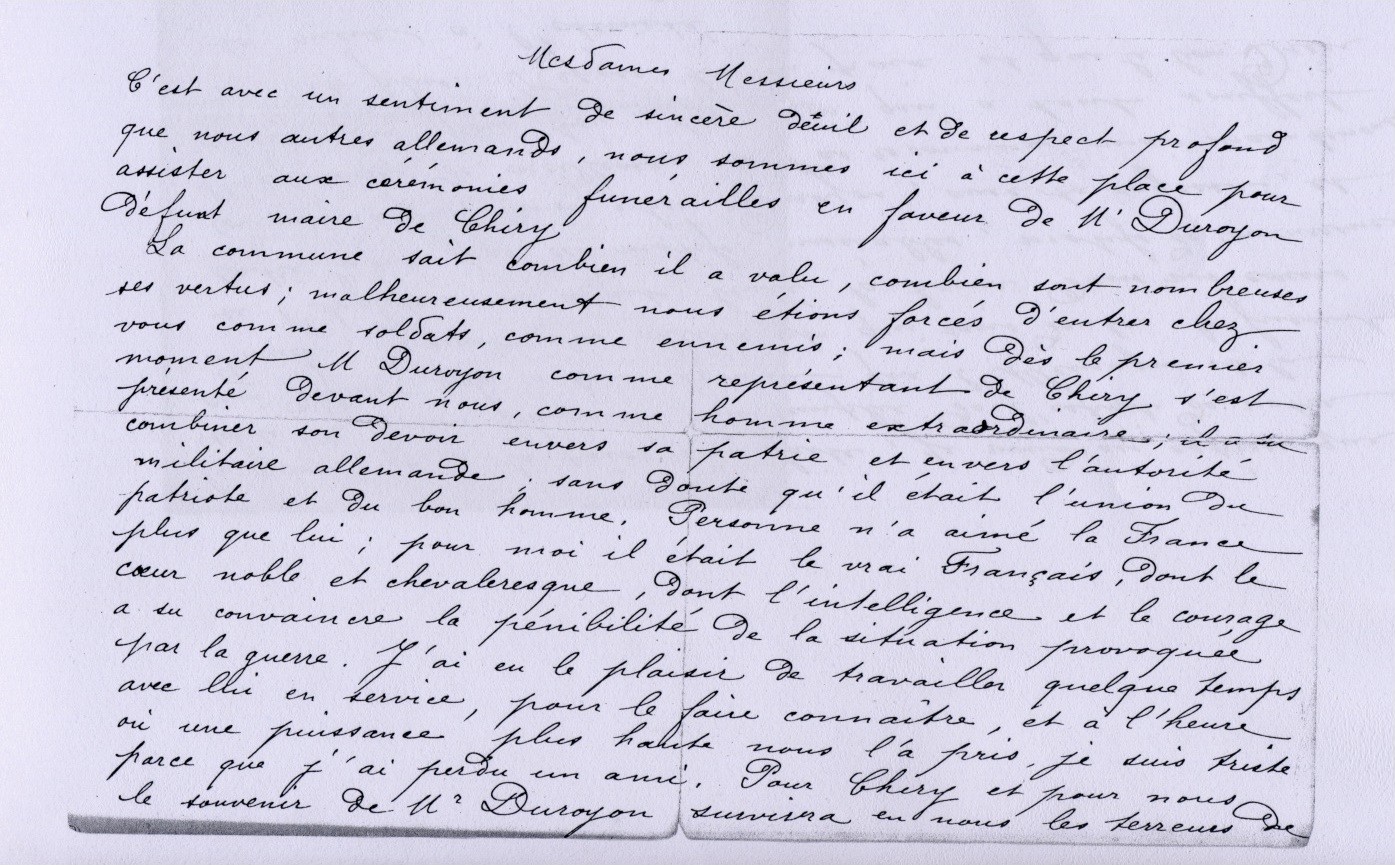 Mesdames Messieurs
C'est avec un sentiment de sincère deuil et de respect profond
que nous autres allemands, nous sommes ici à cette place pour
assister aux cérémonies funérailles en faveur de Mr Duroyon
défunt maire de Chiry
La commune sait combien il a valu, combien sont nombreuses
ses vertus ; malheureusement nous étions forcés d'entrer chez
vous comme soldats, comme ennemis ; mais dès le premier
moment M Duroyon comme représentant de Chiry s'est
présenté devant nous, comme homme extraordinaire ; il a su
combiner son devoir envers sa patrie et envers l'autorité
militaire allemande ; sans doute qu'il était l'union du
patriote et du bon homme. Personne n'a aimé la France
plus que lui ; pour moi il était le vrai Français, dont le
cœur noble et chevaleresque, dont l'intelligence et le courage
a su convaincre la pénibilité de la situation provoquée
par la guerre. J'ai eu le plaisir de travailler quelque temps
avec lui en service, pour le faire connaître, et à l'heure
où une puissance plus haute nous l'a pris, je suis triste
parce que j'ai perdu un ami. Pour Chiry et pour nous
le souvenir de Mr Duroyon survivra en nous les terreurs de